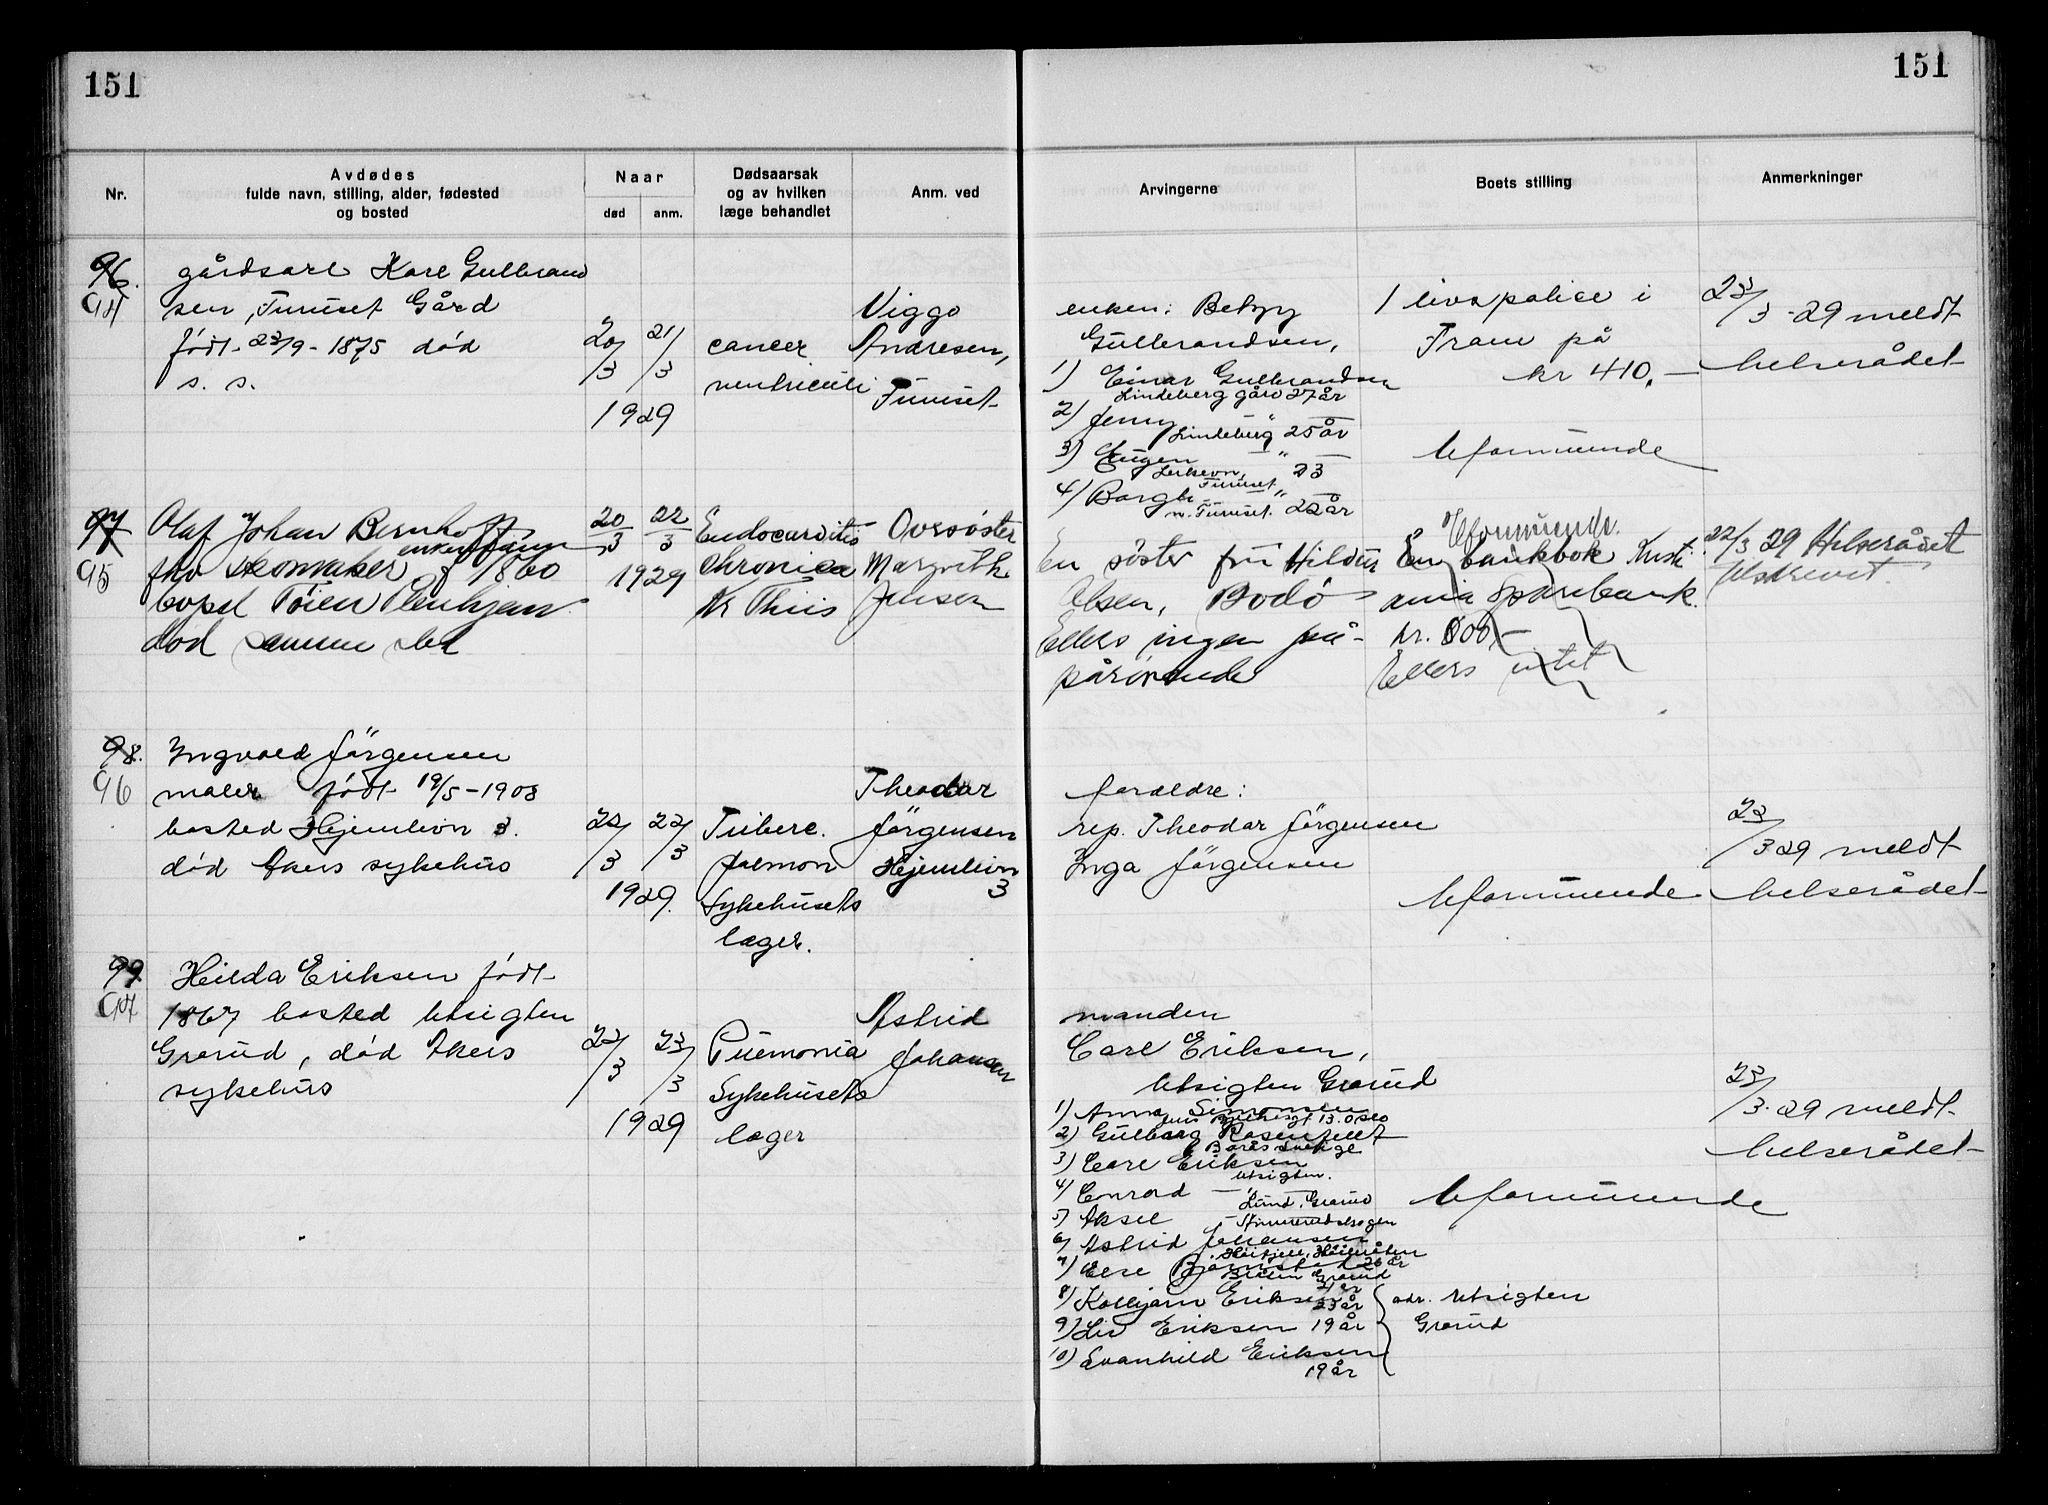 151
151
Nr.
Avdødes
fulde navn, stilling, alder, fødested
og bosted
Naar
død
anm.
Dødsaarsak
og av hvilken
læge behandlet
Anm. ved
Arvingerne
Boets stilling
Anmerkninger
96.
94
gårdsarb Karl Gulbrand
sen, Furuset Gård
født 23/9 - 1875 død
s. s.
20/3
21/3
1929
cancer
ventriculi
Viggo
Andresen,
Furuset
enken: Betzy
Gulbrandsen,
1) Einar Gulbrandsen
Lindeberg gård 27 år
2) Jenny — " —
Lindeberg 25 år
3) Eugen — " — 23
Furuset
4) Borgh — " — 22 år
Furuset.
1 livspolice i
Fram på
kr 410.—
Uformuende
23/3 - 29 meldt
helserådet
97
95
Olaf Johan Bernhoff
enkemann
fhv skomaker f 1860
bopel Tøien Pleiehjem
død samme sted
20/3
22/3
1929
Endocarditis
chronica
Kr Thiis
Oversøster
Margrethe
Jensen
En søster fru Hildur
Olsen, Bodø
Ellers ingen
pårørende
Uformuende.
En bankbok Kristi
ania Sparebank.
kr. 800,—
Ellers intet
22/3 29 Helserådet
tilskrevet.
98.
96
Ingvald Jörgensen
maler født 19/5 - 1903
bosted Hejemlivn 3.
død Akers sykehus
22/3
22/3
1929.
Tuberc.
pulmon
Sykehusets
læger.
Theodor
Jörgensen
Hejemlivn
3
foreldre:
rep. Theodor Jörgensen
Inga Jörgensen
Uformuende
23/3 29 meldt
helserådet
99.
97
Hilda Eriksen født
1867 bosted Utsigten
Grorud, død Akers
sykehus
22/3
23/3
1929
Pnemonia
Sykehusets
læger
Astrid
Johansen
manden
Carl Eriksen,
Utsigten Grorud
1) Anna Simonsen
13. Oslo
2) Gulborg Rosenfeldt
Borås Sverige
3) Carl Eriksen
Utsigten.
4) Conrad — " —
Lund, Grorud
5) Aksel — " —
6) Astrid Johansen
7) Else Björnstad 26 år
Grorud
8) Kolbjørn Eriksen
23 år
9) Liv Eriksen 19 år
10) Svanhild Eriksen
19 år
adr. Utsigten
Grorud
Uformuende
23/3 - 29 meldt
helserådet